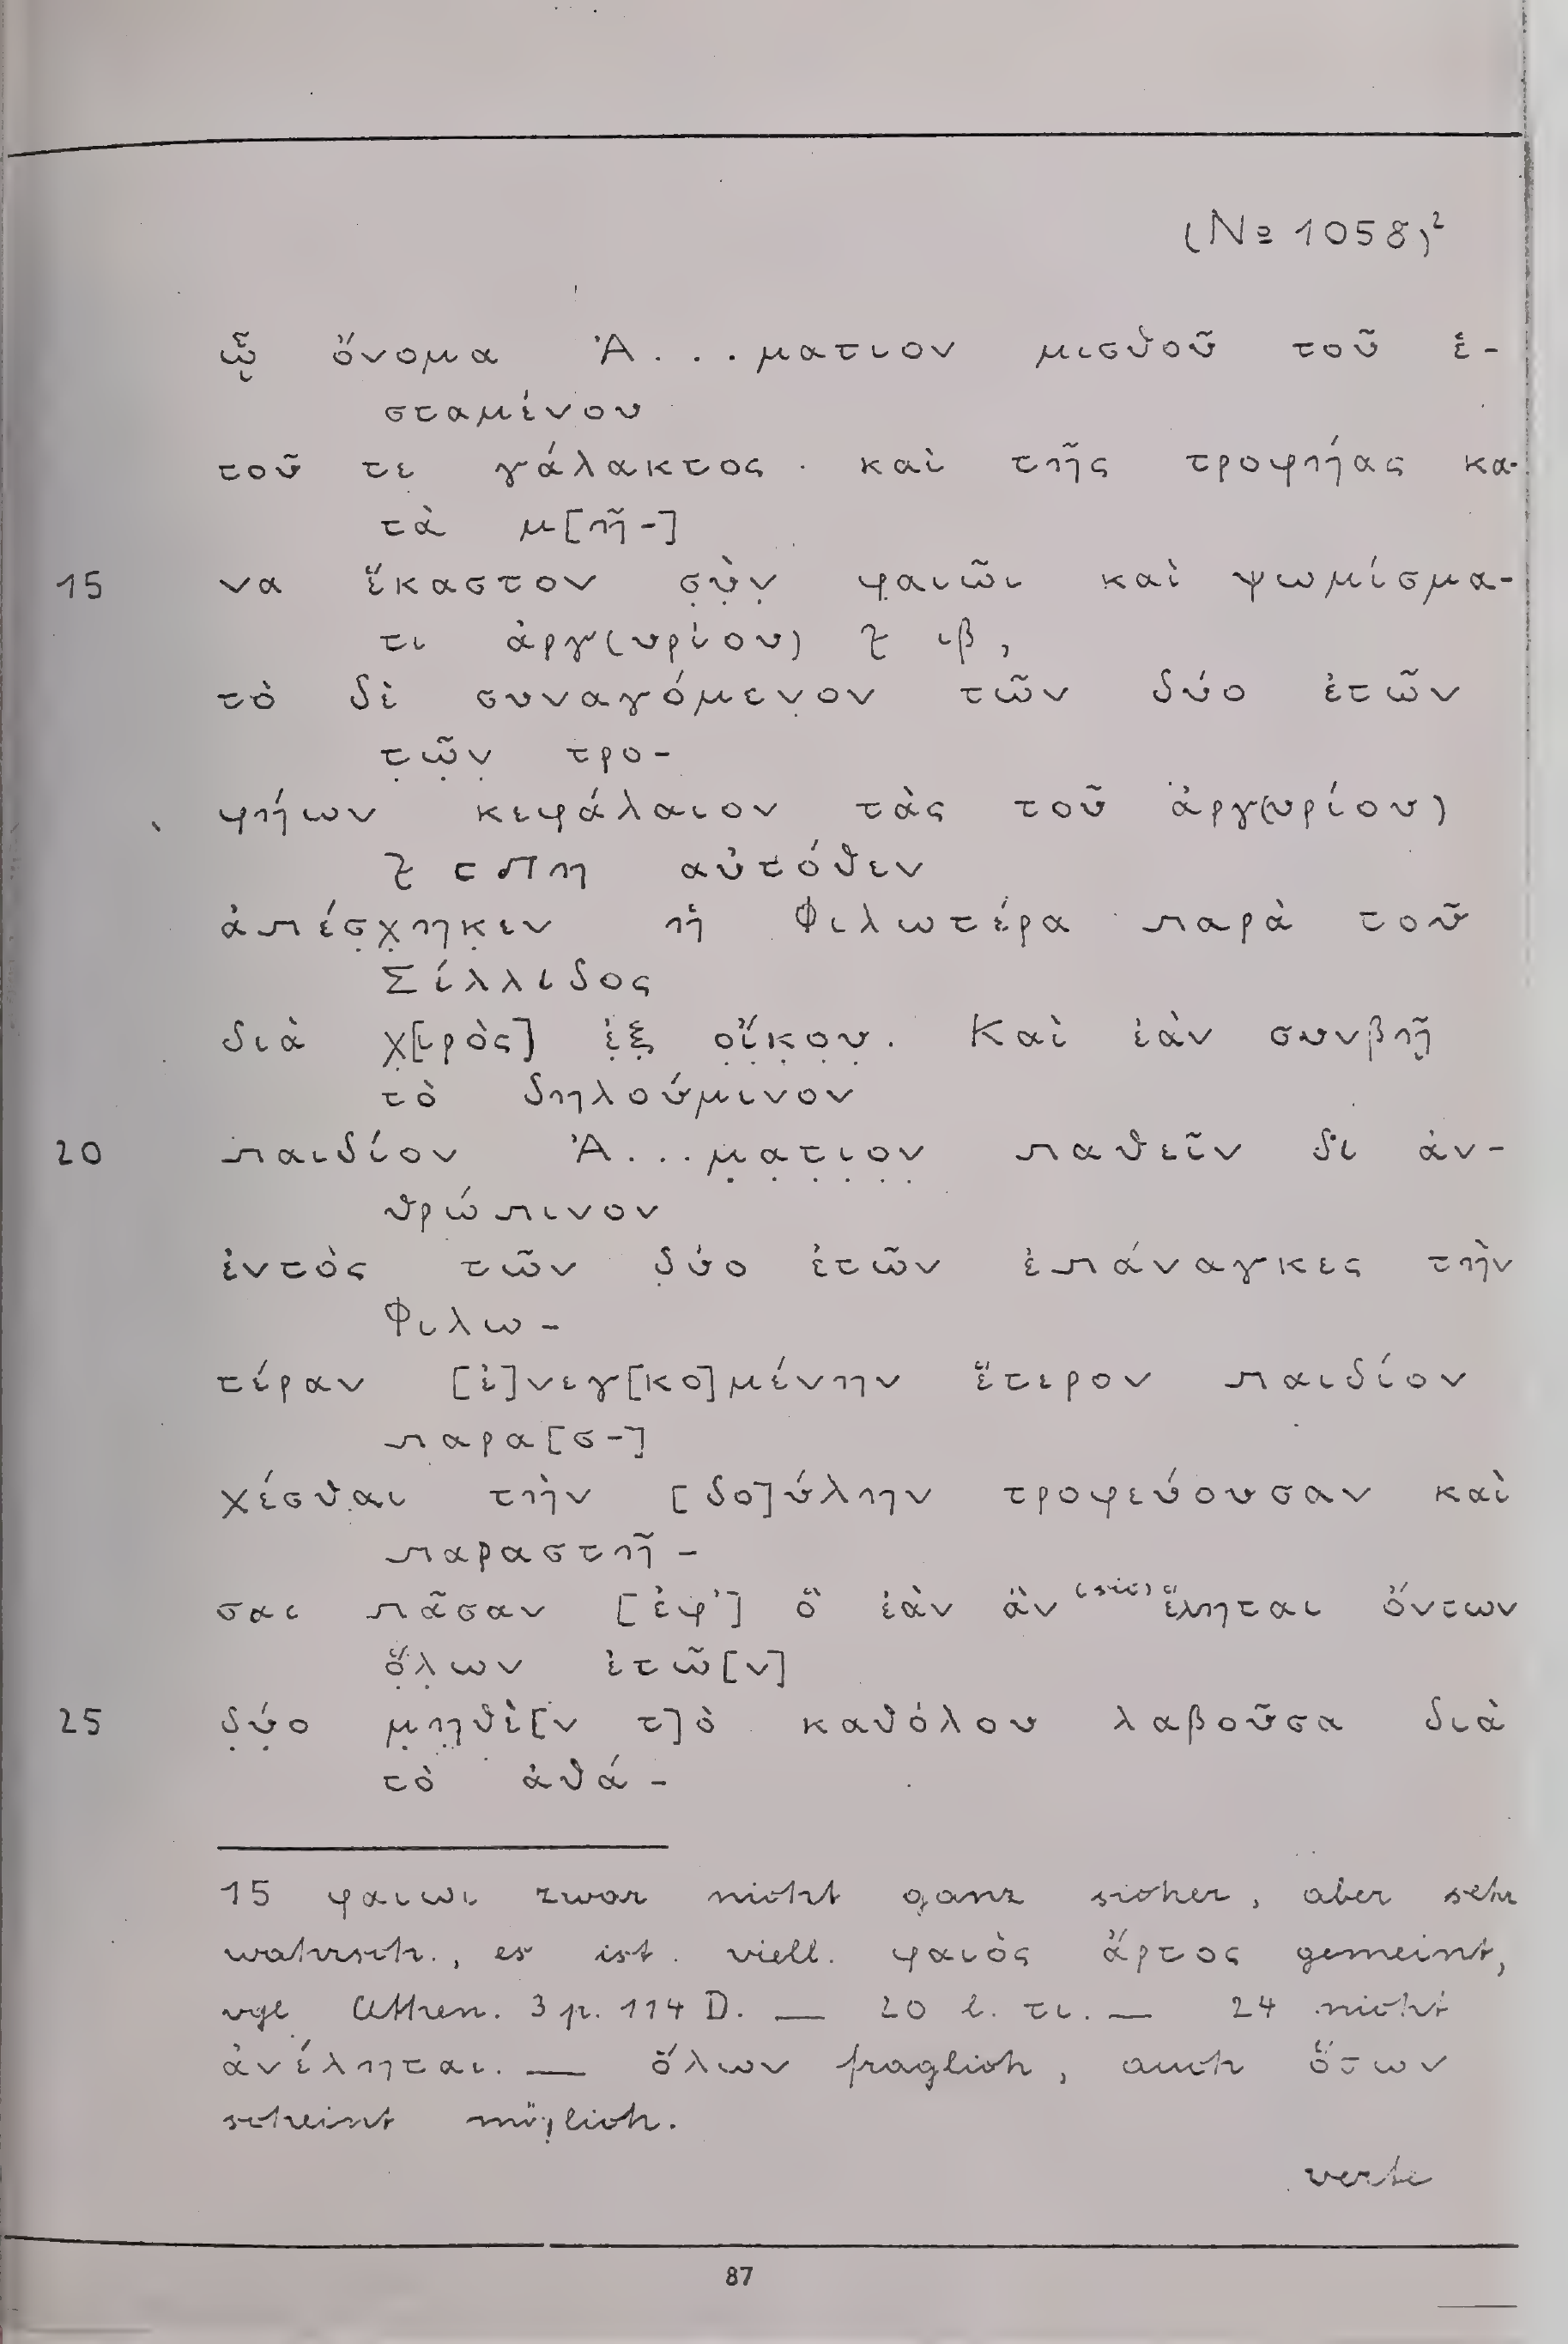 (№ 1058)²
ᾧ ὄνομα Ἀ...ματιον μισθοῦ τοῦ ἑ-
σταμένου
τοῦ τε γάλακτος καὶ τῆς τροφήας κα-
τὰ μ[ῆ-]
15 να ἕκαστον σ̣ὺ̣ν̣ φαιῶι καὶ ψωμίσμα-
τι ἀργ(υρίου) ⳨ ιβ,
τὸ δὲ συναγόμενον τῶν δύο ἐτῶν
τ̣ῶ̣ν̣ τρο-
φήων κεφάλαιον τὰς τοῦ ἀργ(υρίου)
⳨ σπη αὐτόθεν
ἀπέσ̣χ̣ηκ̣εν ἡ Φιλωτέρα παρὰ τοῦ
Σίλλιδος
διὰ χ̣[ερὸς] ἐ̣ξ̣ ο̣ἴ̣κ̣ο̣υ̣. Καὶ ἐὰν συνβῇ
τὸ δηλούμενον
20 παιδίον Ἀ...μ̣α̣τ̣ι̣ο̣ν̣ παθεῖν δι ἀν-
θρώπινον
ἐντὸς τῶν δύο ἐτῶν ἐπάναγκες τὴν
Φιλω-
τέραν [ἐ]νεγ[κο]μένην ἕτερον παιδίον
παρα[σ-]
χέσθαι τὴν [δο]ύλην τροφεύουσαν καὶ
παραστῆ-
σαι πᾶσαν [ἐφ'] ὃ ἐὰν ἂν (sic) ἕληται ὄντων
ὅ̣λ̣ων ἐτῶ[ν]
25 δ̣ύ̣ο μ̣η̣θ̣ὲ[ν τ]ὸ καθόλου λαβοῦσα διὰ
τὸ ἀθά-
15 φαιωι zwar nicht ganz sicher, aber sehr
wahrsch., es ist viell. φαιὸς ἄρτος gemeint,
vgl Athen. 3 p. 114 D. — 20 l. τι. — 24 nicht
ἀνέληται. — ὅλων fraglich, auch ὅσων
scheint möglich.
verte
87